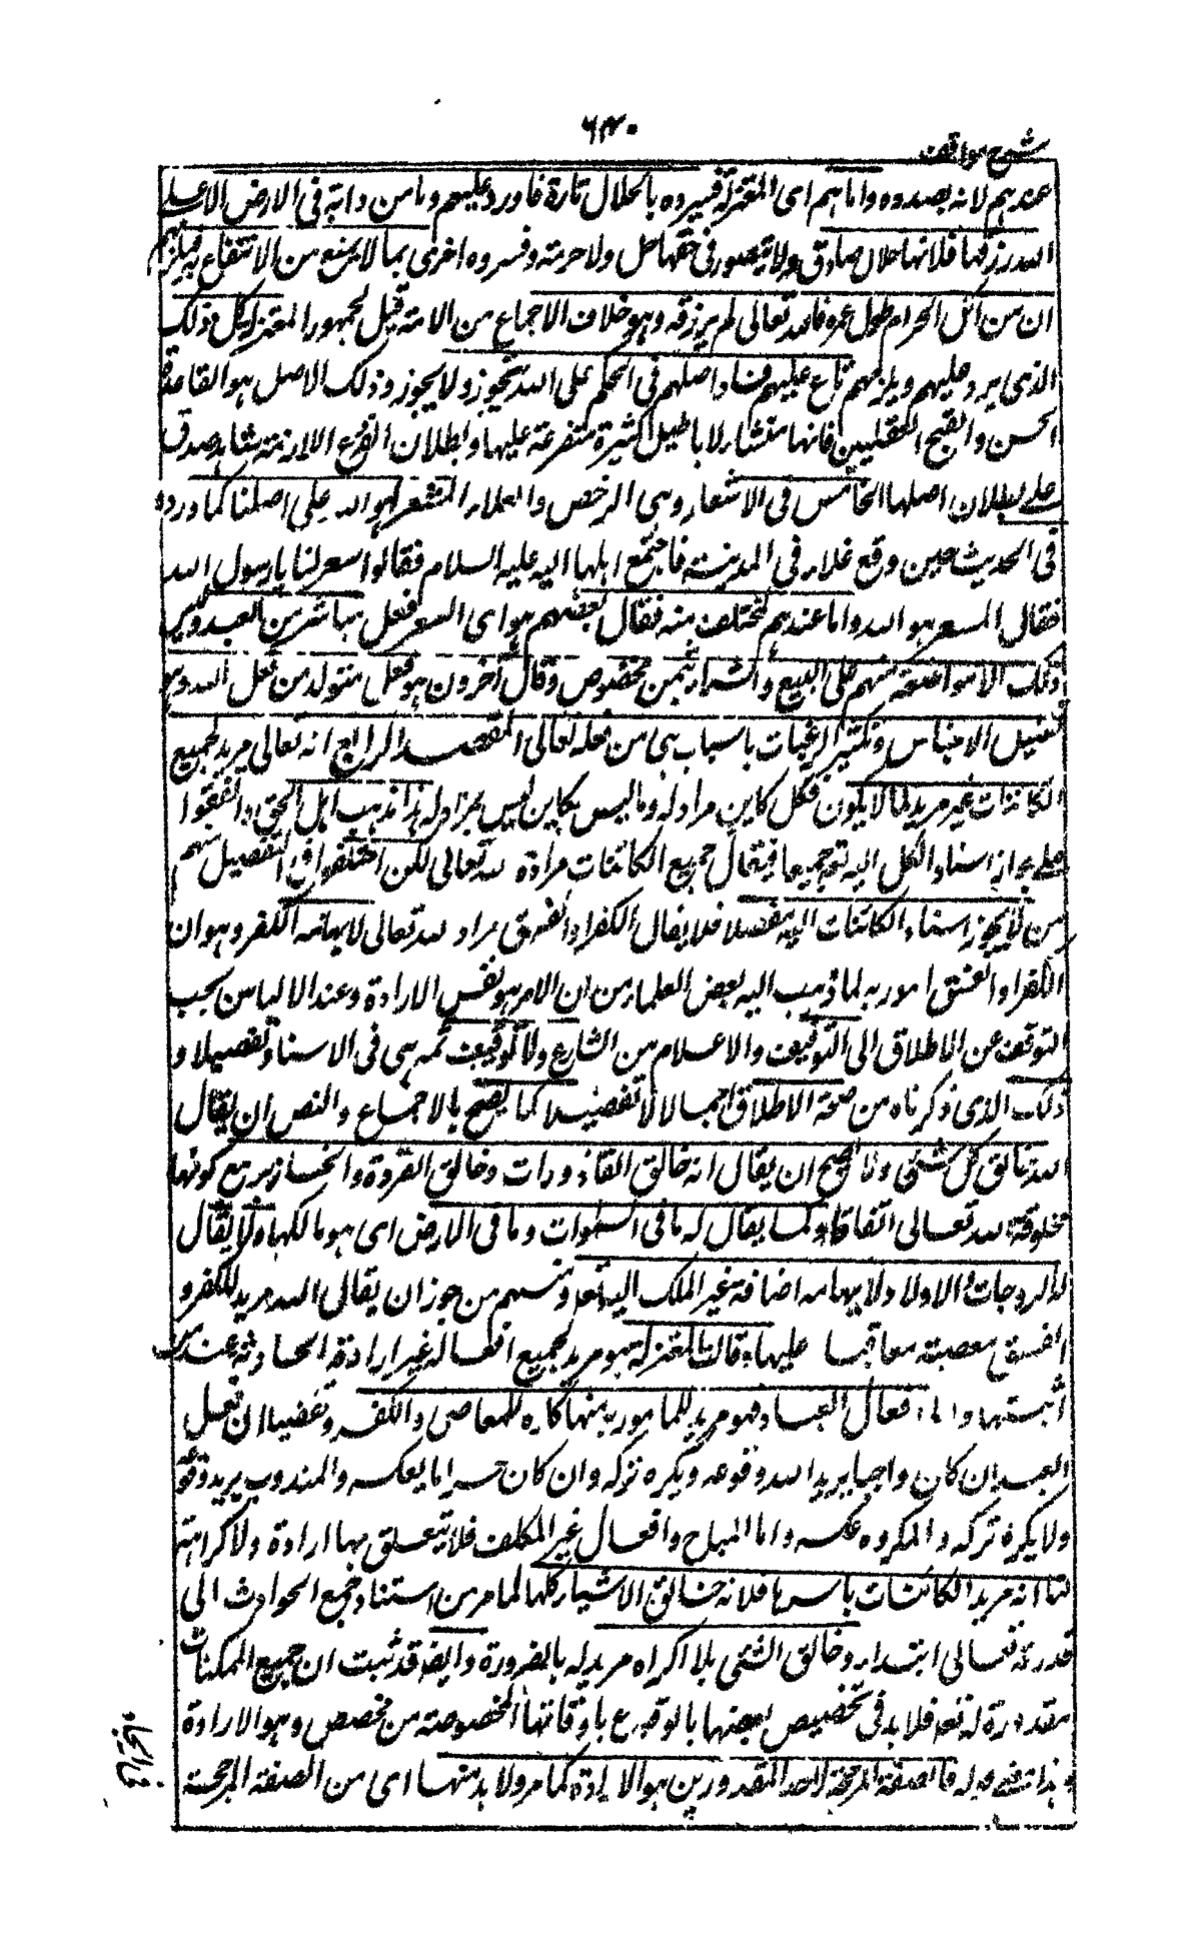 ٦٤٠
شرح مواقف
عندهم لانه بصدده واما هم اى المعتزلة ففسروه بالحلال تارة فاورد عليهم وما من دابة فى الارض الا على
الله رزقها فلانها حلال صادق ولا يتصور فى حقها حل ولا حرمة وفسروه اخرى بما لا يمنع من الانتفاع به فيلزمهم
ان من اكل الحرام طول عمره فالله تعالى لم يرزقه وهو خلاف الاجماع من الامة قبل ظهور المعتزلة كل ذلك
الذى يرد عليهم ويلزمهم فرع عليهم فساد اصلهم فى الحكم على الله بيجوز ولا يجوز وذلك الاصل هو القاعدة
الحسن والقبح العقليين فانها منشأ لاباطيل كثيرة متفرعة عليها وبطلان الفروع اللازمة شاهد صدق
على بطلان اصلها الخامس فى الاسعار وهى الرخص والغلاء المسعر هو الله على اصلنا كما ورد
فى الحديث حين وقع غلاء فى المدينة فاجتمع اهلها اليه عليه السلام فقالوا سعر لنا يا رسول الله
فقال المسعر هو الله واما عندهم فمختلف فيه فقال بعضهم هو اى السعر فعل مباشر من العبد وليس
ذلك الا مواضعة منهم على البيع والشراء بثمن مخصوص وقال آخرون هو فعل متولد من فعل الله وهو
تقليل الاجناس وتكثير الرغبات باسباب هى من فعله تعالى المقصد الرابع انه تعالى مريد لجميع
الكائنات غير مريد لما لا يكون فكل كاين مراد له وما ليس بكاين ليس بمراد له هذا مذهب اهل الحق واتفقوا
على جواز اسناد الكل اليه تع جميعا فيقال جميع الكائنات مرادة لله تعالى لكن اختلفوا فى التفصيل منهم
من لا يجوز اسناد الكائنات اليه مفصلا فلا يقال الكفر او الفسق مراد لله تعالى لايهامه الكفر وهو ان
الكفر او الفسق مامور به لما ذهب اليه بعض العلماء من ان الامر هو نفس الارادة وعند الالباس يجب
التوقف عن الاطلاق الى التوقيف والاعلام من الشارع ولا توقيف ثمه اى فى الاسناد تفصيلا و
ذلك الذى ذكرناه من صحة الاطلاق اجمالا لا تفصيلا كما يصح بالاجماع والنص ان يقال
الله خالق كل شئ ولا يصح ان يقال انه خالق القاذورات وخالق القردة والخنازير مع كونها
مخلوقة لله تعالى اتفاقا وكما يقال له ما فى السموات وما فى الارض اى هو مالكها ولا يقال
له الزوجات والاولاد لايهامه اضافة غير الملك اليه تع ومنهم من جوز ان يقال الله مريد للكفر و
الفسق معصية معاقبا عليها وقالت المعتزلة هو مريد لجميع افعاله غير ارادته الحادثة عند من
اثبتها واما افعال العباد فهو مريد للمامور به منها كاره للمعاصى والكفر وتفصيله ان فعل
العبد ان كان واجبا يريد الله وقوعه ويكره تركه وان كان حراما بعكسه والمندوب يريد وقوعه
ولا يكره تركه والمكروه عكسه واما المباح وافعال غير المكلف فلا تتعلق بها ارادة ولا كراهة
لنا انه مريد الكائنات باسرها فلانه خالق الاشياء كلها لما مر من استناد جميع الحوادث الى
قدرته تعالى ابتداء وخالق الشئ بلا اكراه مريد له بالضرورة وايضا قد ثبت ان جميع الممكنات
مقدورة له تع فلا بد فى تخصيص بعضها بالوقوع باوقاتها المخصوصة من مخصص وهو الارادة
وهذا معنى قوله فالصفة المرجحة لاحد المقدورين هو الارادة كما مر ولا بد منها اى من الصفة المرجحة